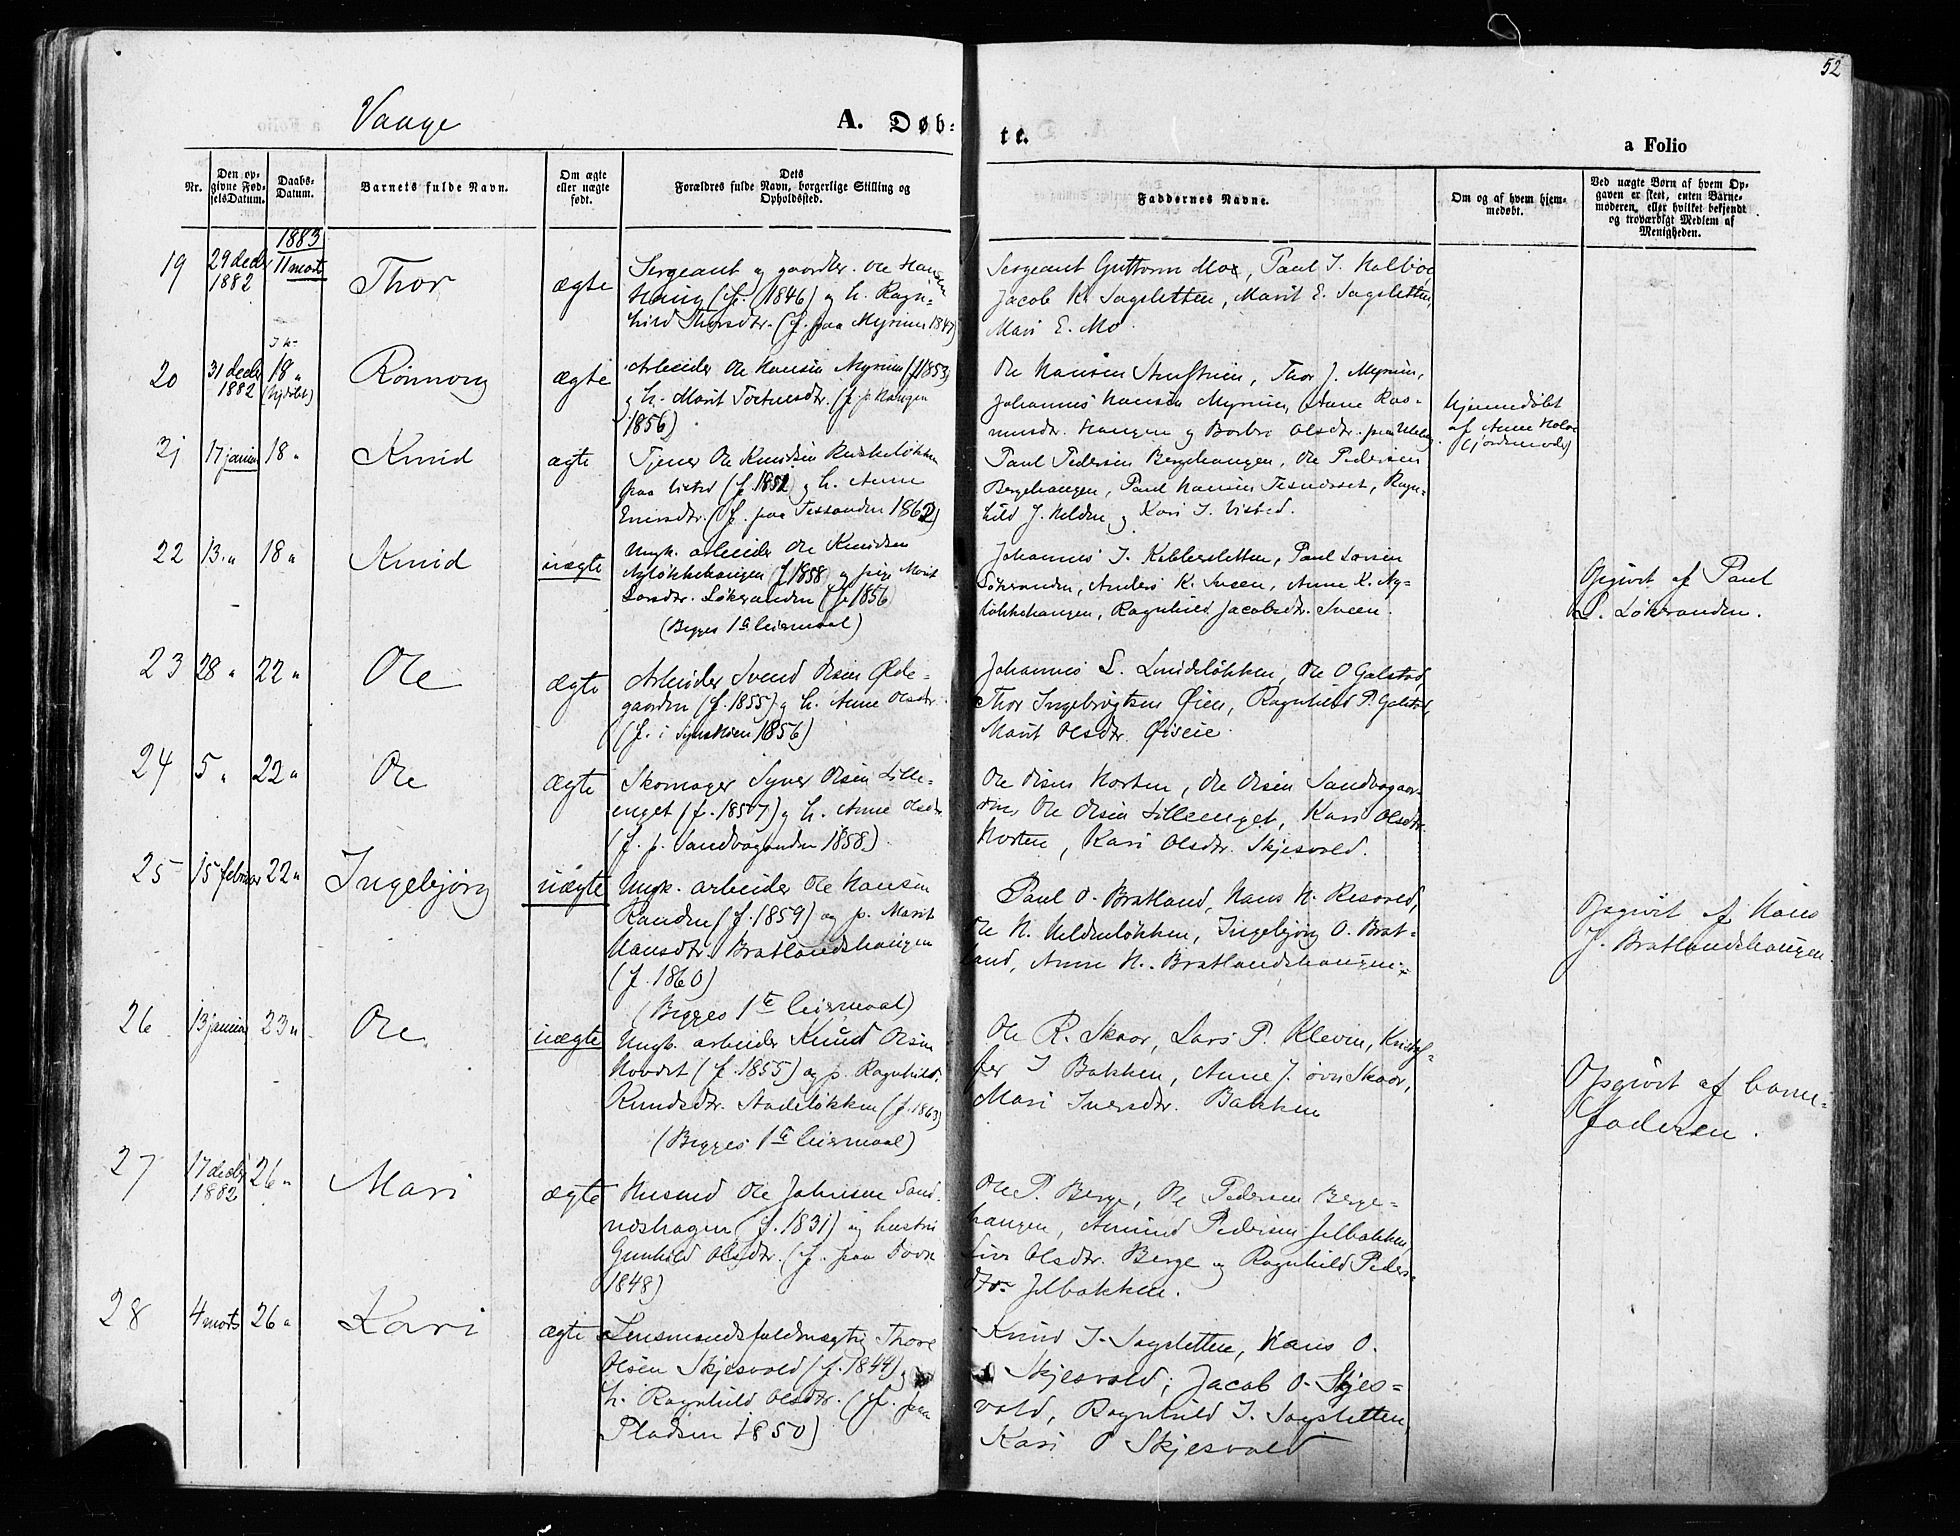 52
Vaage
A. Døb-
te.
a Folio
Nr.
Den op-
givne Fød-
selsDatum.
Daabs-
Datum.
Barnets fulde Navn.
Om ægte
eller uægte
født.
Dets
Forældres fulde Navn, borgerlige Stilling og
Opholdssted.
Faddernes Navne.
Om og af hvem hjem-
medøbt.
Ved uægte Børn af hvem Op-
gaven er skeet, enten Barne-
moderen, eller hvilket bekjendt
og troværdigt Medlem af
Menigheden.
1883
19 29 decbr 1882 11 marts Thor ægte
Sergeant og gaardbr. Ole Hansen
Haug (f. 1846) og h. Ragn-
hild Thorsdtr. (f. paa Myrum 1847)
Sergeant Guttorm Mo, Paul I.
Jacob K. Sagsletten, Marit E. Sagsletten,
Mari E. Mo.
20 31 decbr 1882 18 " Rønnoug ægte
Arbeider Ole Hansen Myrum (f. 1853)
og h. Marit (f. p. Haugen
1856)
Ole Hansen Thor J. Myrum,
Johannes Hansen Myrum, Anne Ras-
musdtr. Haugen og Barbro Olsdtr.
Hjemmedøbt
af Anne
(jordemoder)
21 17 januar 18 " Knud ægte
Tjener Ole Knudsen
paa (f. 1852) og h. Anne
Eversdtr. (f. paa Tessanden 1862)
Paul Pedersen Bergehaugen, Ole Pedersen
Bergehaugen, Paul Hansen Ragn-
hild J. Helden og Kari I. Visted.
22 13 " 18 " Knud uægte
Ungk. arbeider Ole Knudsen
Nyløkkehaugen (f. 1858) og pige Marit
Larsdtr. Løkranden (f. 1856)
(Begges 1ste leiermaal)
Johannes I. Paul Larsen
Løkranden, Anders K. Sveen, Anne K. Ny-
løkkehaugen, Ragnhild Jacobsdtr. Sveen.
Opgivet af Paul
L. Løkranden.
23 28 " 22 " Ole ægte
Arbeider Svend Olsen Øde-
gaarden (f. 1855) og h. Anne Olsdtr.
(f. i 1856)
Johannes L. Ole O Galstad,
Thor Ingebrigtsen Øien, Ragnhild P. Galstad,
Marit Olsdtr. Øiseie.
24 5 " 22 " Ole ægte
Skomager Syver Olsen Lille-
enget (f. 1857) og h. Anne Olsdtr.
(f. p. Sandvoganden 1858).
Ole Olsen Horten, Ole Olsen Sandvogan-
den, Ole Olsen Lilleenget, Kari Olsdtr.
Horten, Kari Olsdtr. Skjesvold.
25 15 februar 22 " Ingebjørg uægte
Ungk. arbeider Ole Hansen
Randen (f. 1859) og p. Marit
Hansdtr. Bratlandshaugen
(f. 1860)
(Begges 1ste leiermaal)
Paul O. Bratland, Hans H. Resvold,
Ole N. Heldenløkken, Ingebjørg O. Brat-
land, Anne H. Bratlandshaugen.
Opgivet af Hans
J. Bratlandshaugen.
26 13 januar 23 " Ole uægte
Ungk. arbeider Knud Olsen
Hovdet (f. 1855) og p. Ragnhild
Knudsdtr. Stadeløkken (f. 1863)
(Begges 1ste leiermaal)
Ole R. Skaar, Lars P. Kleven, Kristof-
fer I Bakken, Anne J. øvre Skaar,
Mari Iversdtr. Bakken
Opgivet af barne-
faderen.
27 17 decbr 1882 26 " Mari ægte
Husmd Ole Johnsen Sand-
neshagen (f. 1831) og hustru
Gunhild Olsdtr. (f. paa Dovre
1848)
Ole P. Berge, Ole Pedersen Berge-
haugen, Amund Pedersen Jelbakken,
Siri Olsdtr. Berge og Ragnhild Peders-
dtr. Jelbakken.
28 4 marts 26 " Kari ægte
Lensmandsfuldmægtig Thore
Olsen Skjesvold (f. 1844) og
h. Ragnhild Olsdtr. (f. paa
Pladsen 1850)
Knud I. Sagsletten, Hans O.
Skjesvold, Jacob O. Skjes-
vold, Ragnhild I. Sagsletten,
Kari O Skjesvold